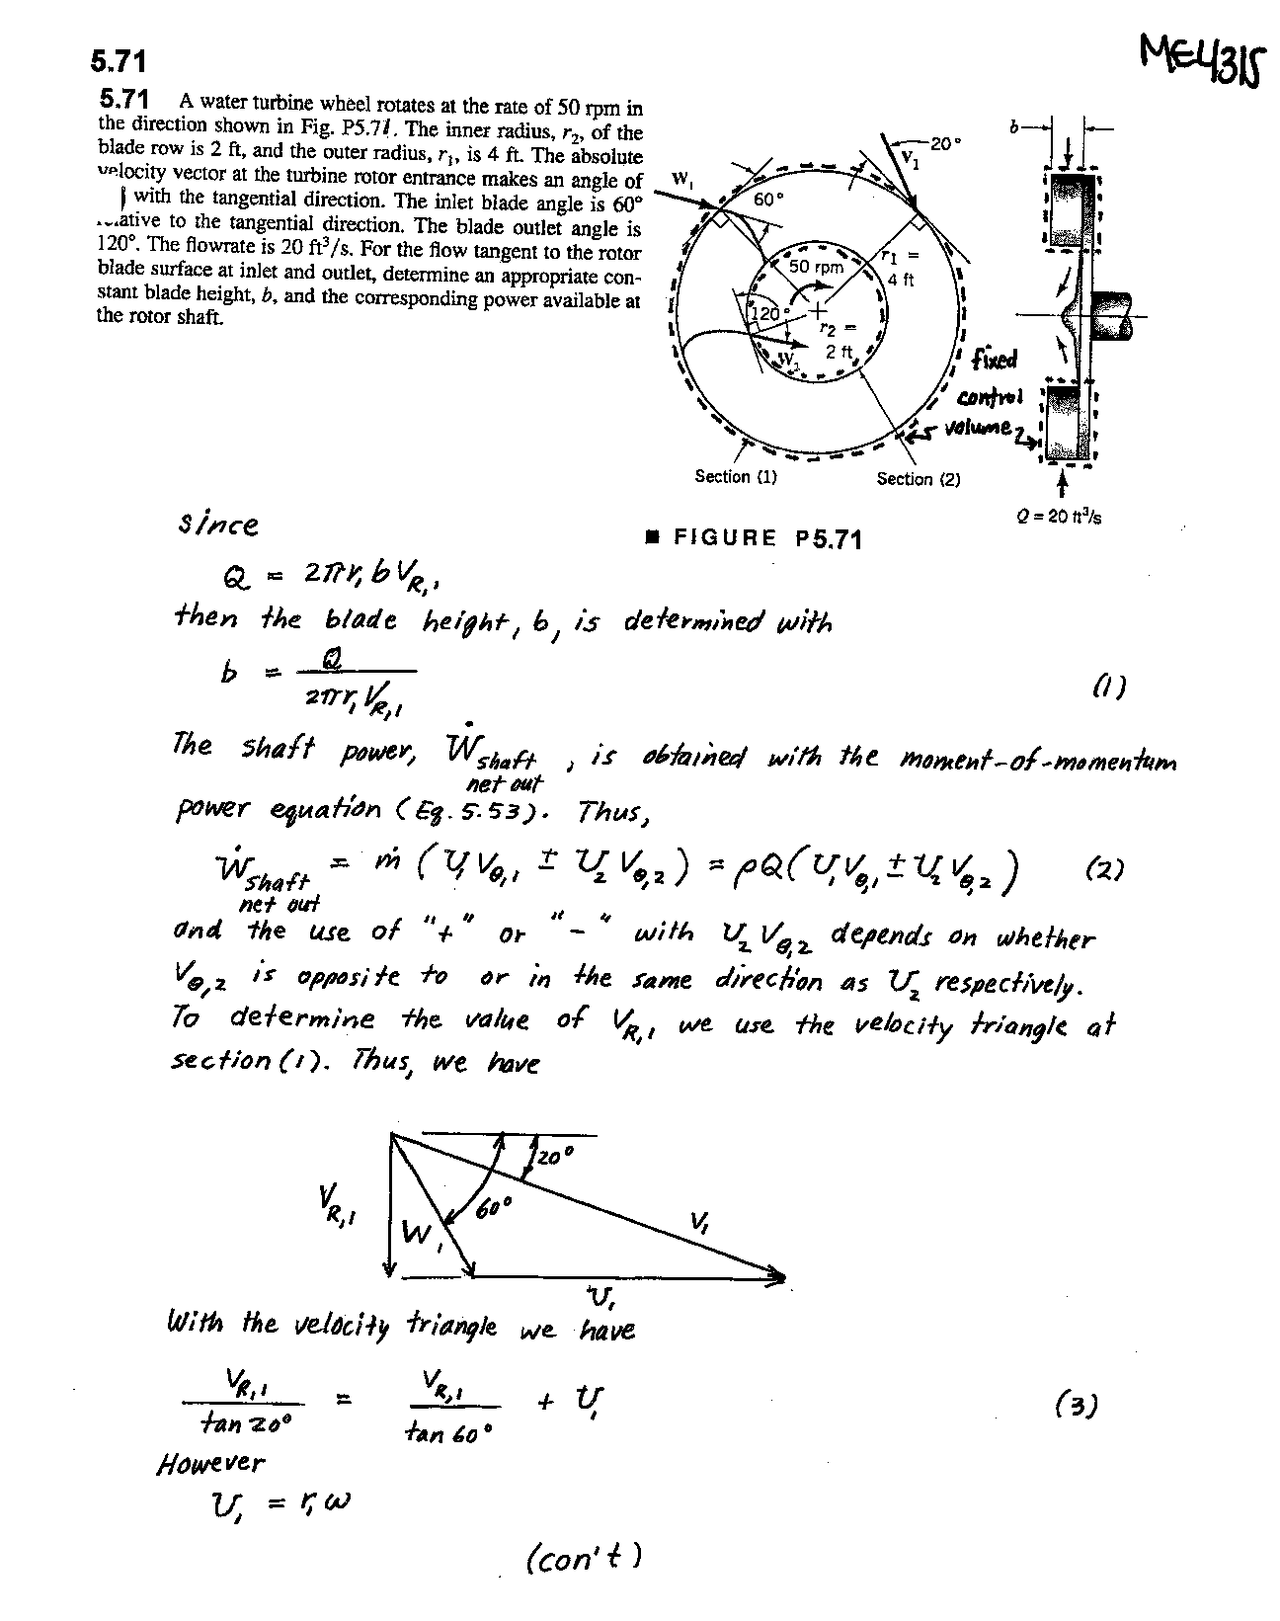 5.71
ME4315
5.71 A water turbine wheel rotates at the rate of 50 rpm in
the direction shown in Fig. P5.71. The inner radius, r₂, of the
blade row is 2 ft, and the outer radius, r₁, is 4 ft. The absolute
velocity vector at the turbine rotor entrance makes an angle of
with the tangential direction. The inlet blade angle is 60°
relative to the tangential direction. The blade outlet angle is
120°. The flowrate is 20 ft³/s. For the flow tangent to the rotor
blade surface at inlet and outlet, determine an appropriate con-
stant blade height, b, and the corresponding power available at
the rotor shaft.
b
20°
V₁
W₁
60°
r₁ =
4 ft
50 rpm
120°
r₂ =
2 ft
W₂
fixed
control
volume
Section (1)
Section (2)
Q = 20 ft³/s
■ FIGURE P5.71
since
Q = 2πr₁ b V_R,1
then the blade height, b, is determined with
b = Q / 2πr₁ V_R,1 (1)
The shaft power, Ẇ shaft net out, is obtained with the moment-of-momentum
power equation (Eq. 5.53). Thus,
Ẇ shaft net out = ṁ (U₁ V_θ,1 ± U₂ V_θ,2) = ρQ(U₁ V_θ,1 ± U₂ V_θ,2) (2)
and the use of "+" or "-" with U₂ V_θ,2 depends on whether
V_θ,2 is opposite to or in the same direction as U₂ respectively.
To determine the value of V_R,1 we use the velocity triangle at
section (1). Thus, we have
20°
60°
V_R,1
W₁
V₁
U₁
With the velocity triangle we have
V_R,1 / tan 20° = V_R,1 / tan 60° + U₁ (3)
However
U₁ = r₁ω
(con't)